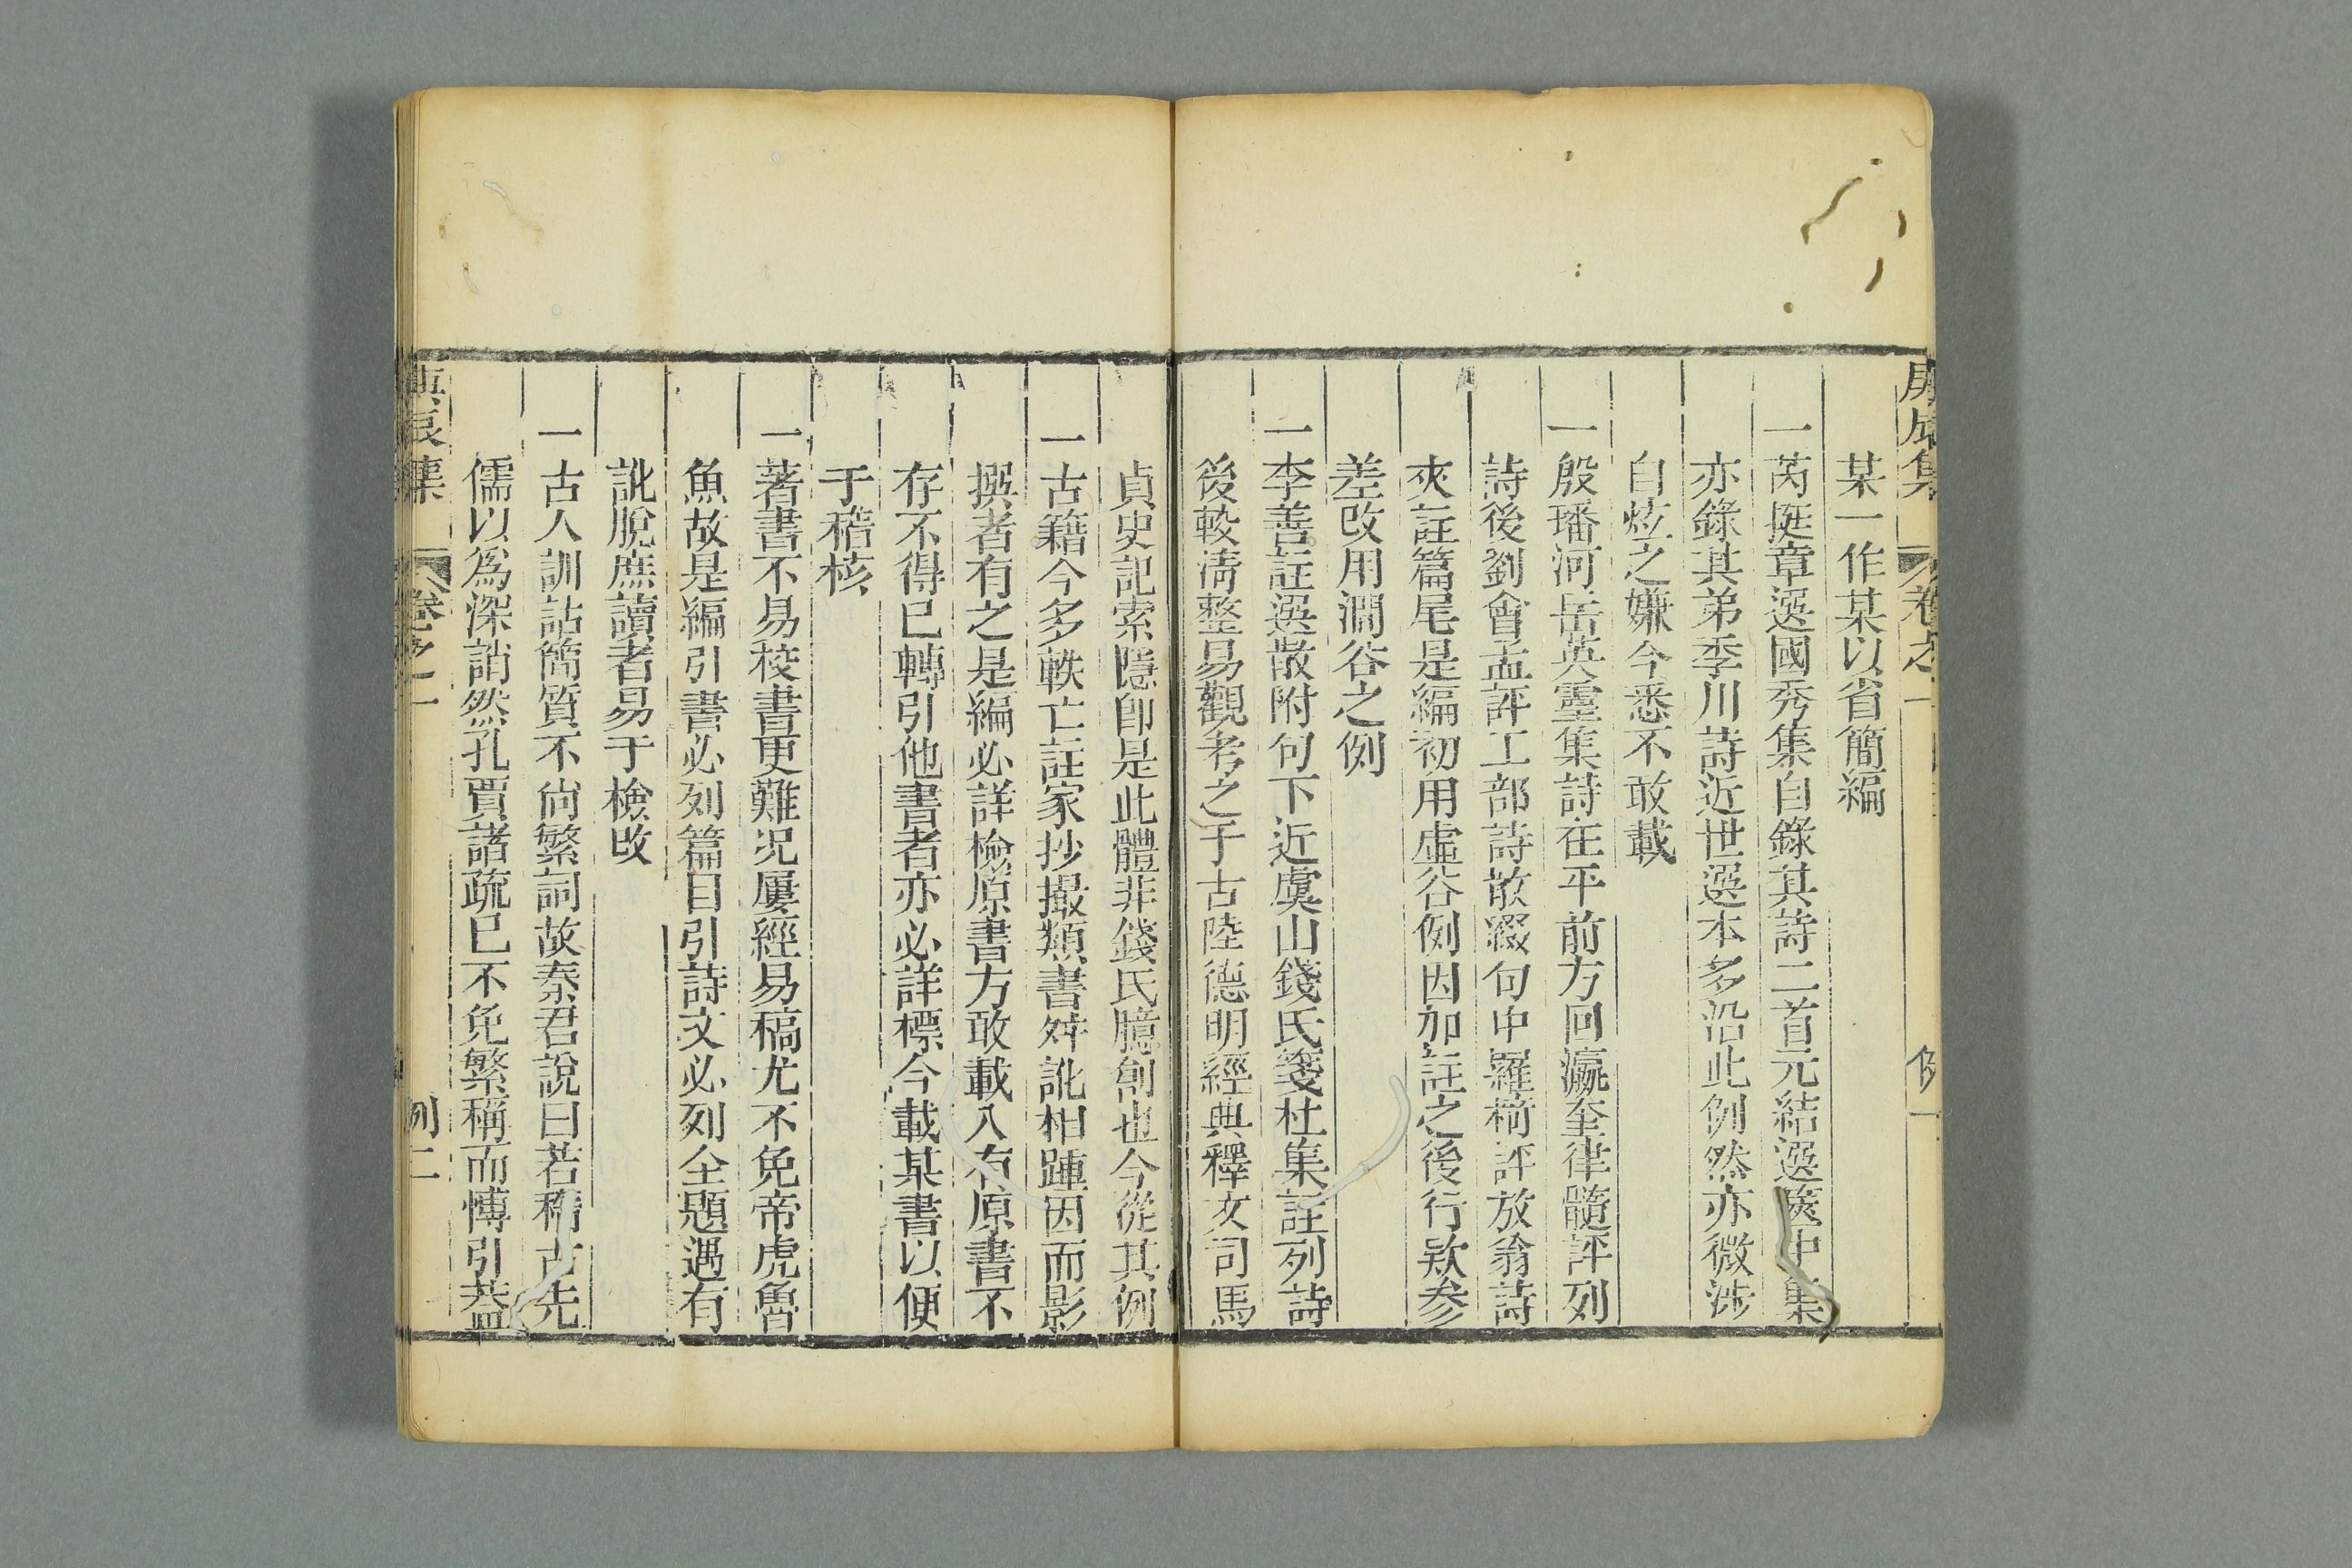 某一作某以省簡編
一芮挺章選國秀集自錄其詩二首元結選篋中集
亦錄其弟季川詩近世選本多沿此例然亦微涉
自炫之嫌今悉不敢載
一殷璠河岳英靈集詩在平前方回瀛奎律髓評列
詩後劉會孟評工部詩散綴句中羅椅評放翁詩
夾註篇尾是編初用虛谷例因加註之後行欵參
差改用澗谷之例
一李善註選散附句下近虞山錢氏箋杜集註列詩
後較淸整易觀考之于古陸德明經典釋文司馬
貞史記索隱卽是此體非錢氏臆創也今從其例
一古籍今多軼亡註家抄撮類書舛訛相踵因而影
撰者有之是編必詳檢原書方敢載入有原書不
存不得已轉引他書者亦必詳標今載某書以便
于稽核
一著書不易校書更難况屢經易稿尤不免帝虎魯
魚故是編引書必列篇目引詩文必列全題遇有
訛脫庶讀者易于檢改
一古人訓詁簡質不尙繁詞故秦君說曰若稽古先
儒以爲深誚然孔賈諸疏已不免繁稱而愽引蓋
集 卷之一 例二